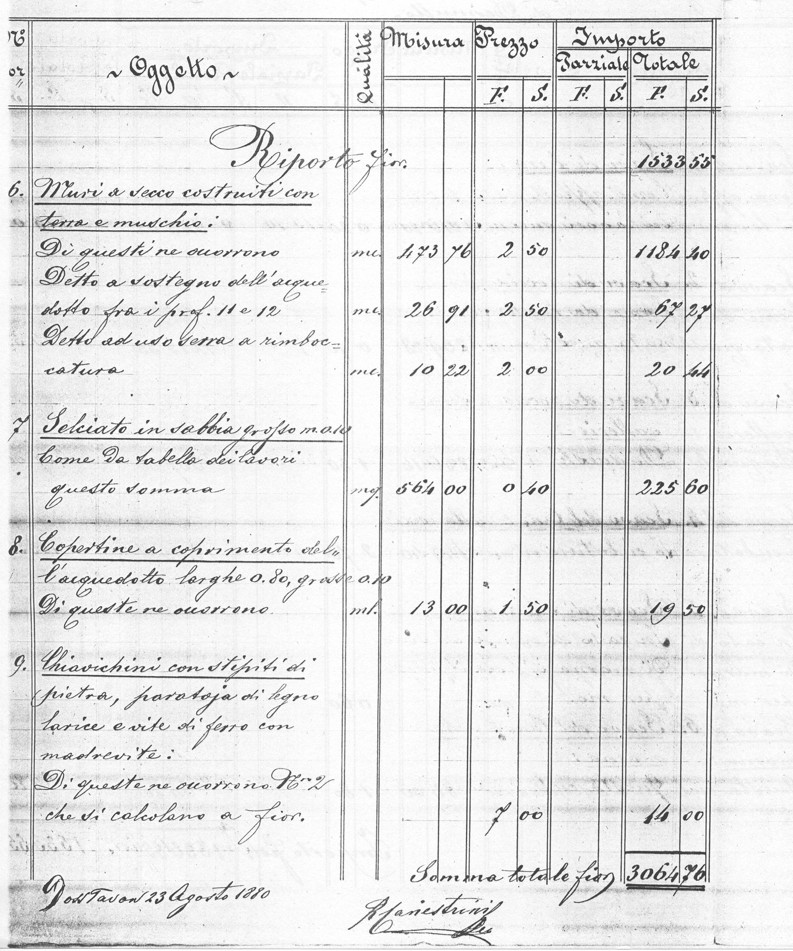 Nº Oggetto Qualità Misura Prezzo Importo
or: Parziale Totale
F. S. F. S. F. S.
Riporto fior. 1533 55
6. Muri a secco costruiti con
terra e muschio:
Di questi ne ocorrono mc. 473 76 2 50 1184 40
Detto a sostegno dell'acque=
dotto fra i prof. 11 e 12 mc. 26 91 2 50 67 27
Detto ad uso serra a rimboc=
catura mc. 10 22 2 00 20 44
7 Selciato in sabbia grosso m. 0.10
Come da tabella dei lavori
questo somma mq. 564 00 0 40 225 60
8. Copertine a coprimento del=
l'acquedotto larghe 0.80, grosse 0.10
Di queste ne ocorrono ml. 13 00 1 50 19 50
9. Chiavichini con stipiti di
pietra, parataja di legno
larice e vite di ferro con
madrevite:
Di queste ne ocorrono Nro 2
che si calcolano a fior. 7 00 14 00
Somma totale fior 3064 76
23 Agosto 1880
RCanestrini